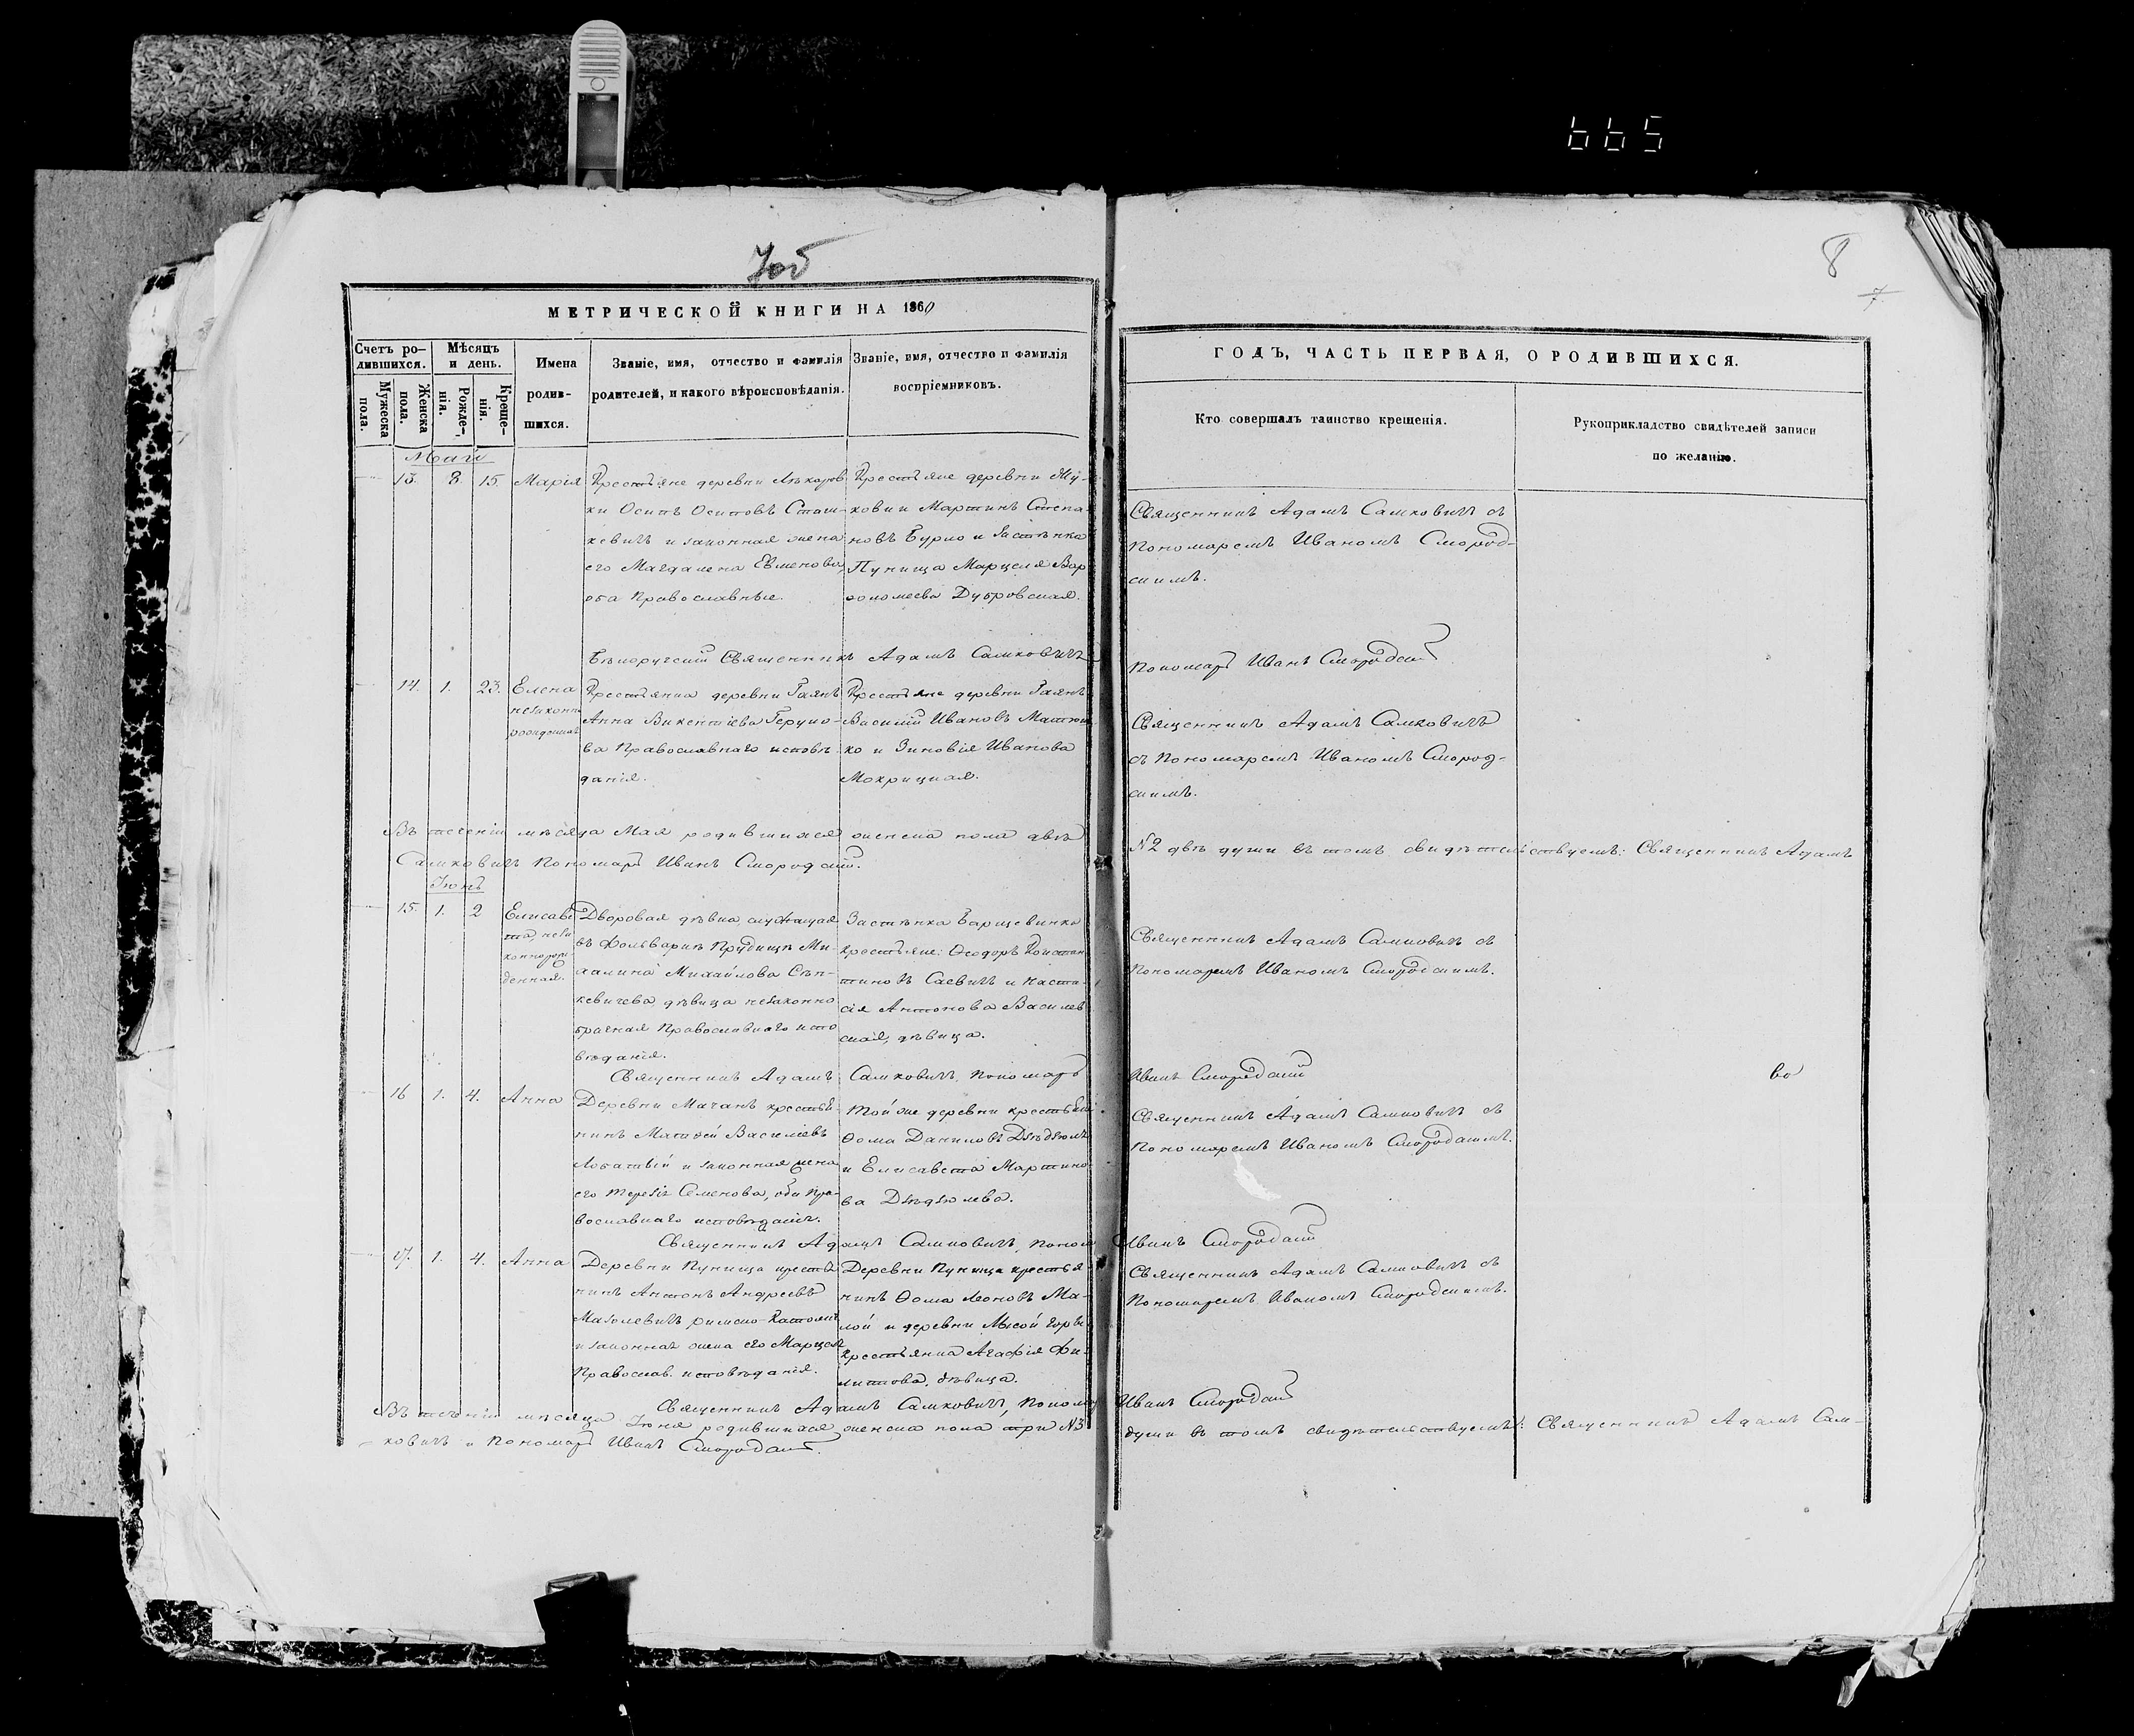 665
7об
8
7
МЕТРИЧЕСКОЙ КНИГИ НА 1860
ГОДЪ, ЧАСТЬ ПЕРВАЯ, О РОДИВШИХСЯ.
Счетъ ро-
дившихся.
Мужеска
пола.
Женска
пола.
Мѣсяцъ
и день.
Рожде-
нія.
Креще-
нія.
Имена
родив-
шихся.
Званіе, имя, отчество и фамилія
родителей, и какого вѣроисповѣданія.
Званіе, имя, отчество и фамилія
воспріемниковъ.
Кто совершалъ таинство крещенія.
Рукоприкладство свидѣтелей записи
по желанію.
Маій
13. 8. 15. Марія
Крестьяне деревни
ки Осипъ Осиповъ Сташ-
кевичъ и законная жена
его Магдалена Евменова,
оба Православные.
Крестьяне деревни Жу-
ковки Мартинъ Степа-
новъ Бурло и Застѣнка
Пуница Марцеля Вар
ѳоломеева Дубровская.
Священникъ Адамъ Самковичъ съ
Пономаремъ Иваномъ Смород-
скимъ.
Священникъ Адамъ Самковичъ
Пономарь Иванъ Смородскій
14. 1. 23. Елена
незаконно
рожденная
Крестьянка деревни Гаянъ
Анна Викентіева
ва Православнаго исповѣ-
данія.
Крестьяне деревни Гаянъ
Василій Ивановъ
ко и Зиновія Иванова
Мокрицкая.
Священникъ Адамъ Самковичъ
съ Пономаремъ Иваномъ Смород-
скимъ.
Въ теченіи мѣсяца Мая родившихся женска пола двѣ
№2 двѣ души въ томъ свидѣтельствуемъ: Священникъ Адамъ
Самковичъ Пономарь Иванъ Смородскій.
Іюнь
15. 1. 2 Елисаве
та, неза
конно рож
денная.
Дворовая дѣвка, служащая
въ Фольваркѣ Прудищѣ Ми-
халина Михайлова
кевичева дѣвица незаконно
брачная Православнаго испо
вѣданія.
Застѣнка Барщевинка
крестьяне: Ѳеодоръ Констан
тиновъ Саевичъ и Наста-
сія Антонова Василев
ская, дѣвица.
Священникъ Адамъ Самковичъ съ
Пономаремъ Иваномъ Смородскимъ.
Священникъ Адамъ Самковичъ, Пономарь
Иванъ Смородскій
16 1. 4. Анна
Деревни Мачанъ крестья-
нинъ Матѳей Василіевъ
Лобатый и законная жена
его Терезія Семенова, оба Пра-
вославнаго исповѣданія.
Той же деревни крестьянинъ
Ѳома Даниловъ
и Елисавета Мартино-
ва
Священникъ Адамъ Самковичъ съ
Пономаремъ Иваномъ Смородскимъ.
Священникъ Адамъ Самковичъ, Поном
Иванъ Смородскій
17. 1. 4. Анна
Деревни Пуница крестья
нинъ Антонъ Андреевъ
Мазолевичъ римско-Католикъ
и законная жена его Марцеля
Православ. исповѣданія.
Деревни Пуница крестья-
нинъ Ѳома Леоновъ Ма-
лой и деревни Лысой горы
крестьянка Агафія Фи-
липпова, дѣвица.
Священникъ Адамъ Самковичъ съ
Пономаремъ Иваномъ Смородскимъ.
Священникъ Адамъ Самковичъ, Поном
Иванъ Смородскій
Въ теченіи мѣсяца Іюня родившихся женска пола три №3
души въ томъ свидѣтельствуемъ: Священникъ Адамъ Сам-
ковичъ и Пономарь Иванъ Смородскій.